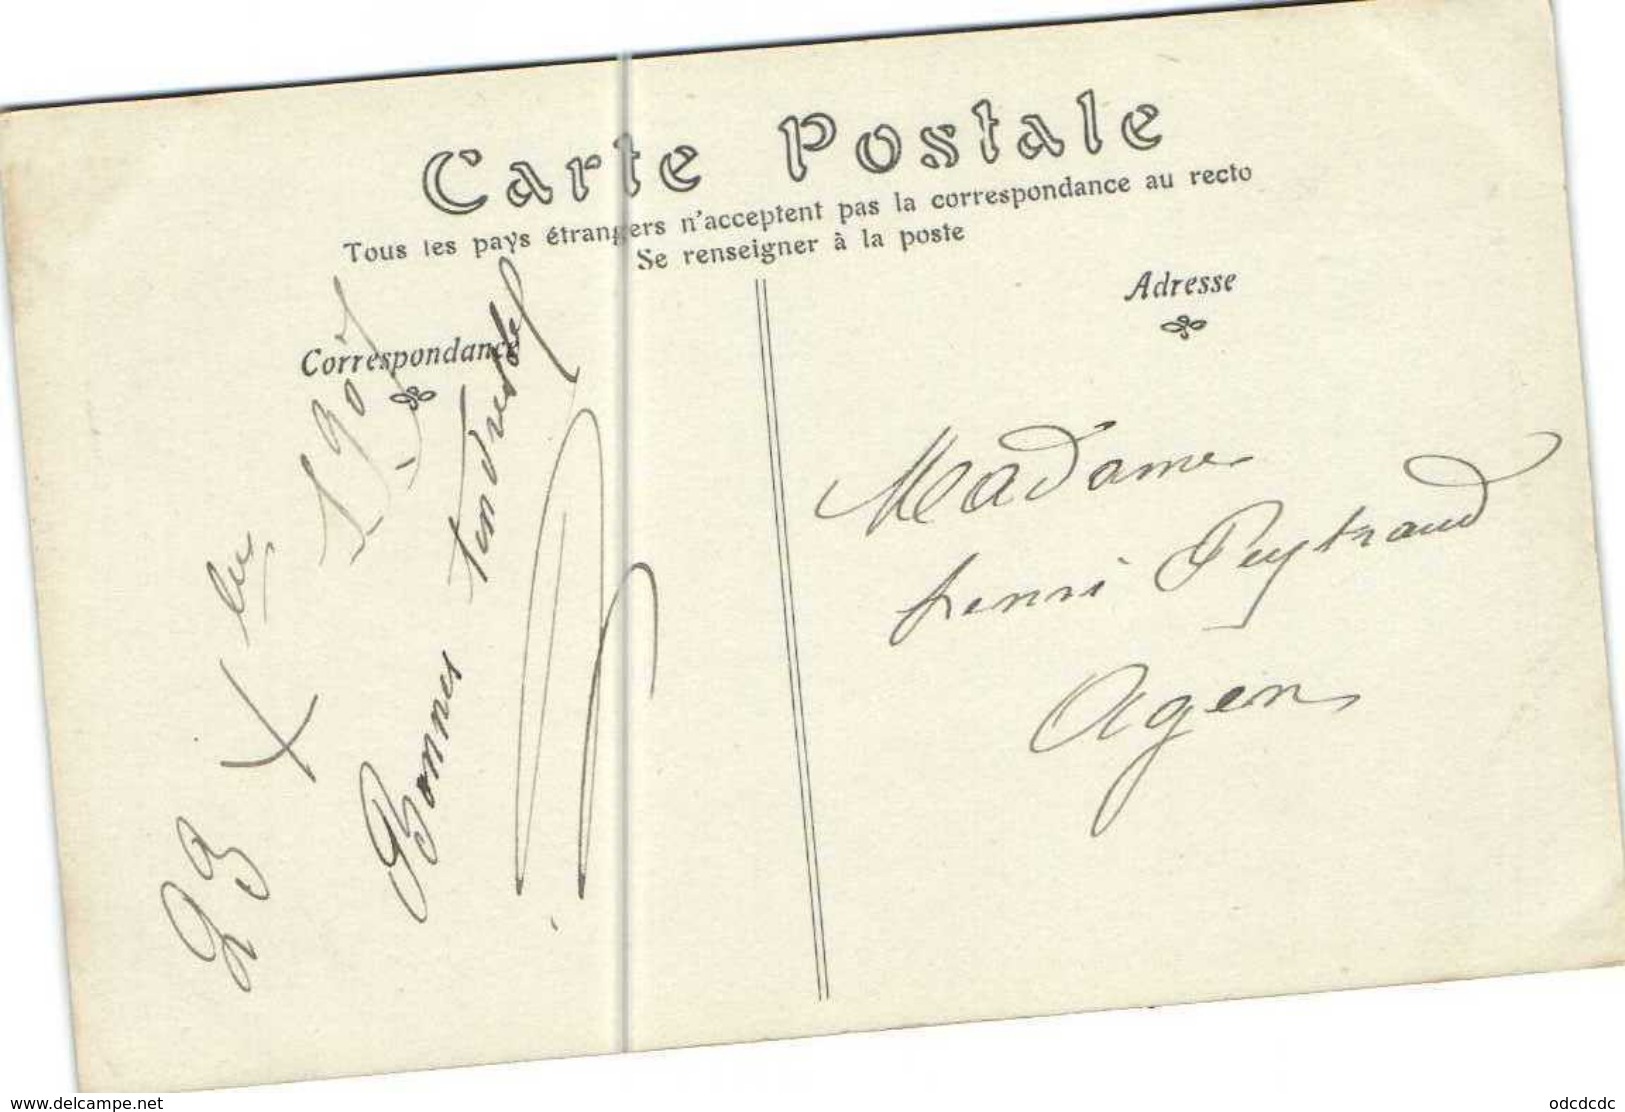 Carte Postale
Tous les pays étrangers n'acceptent pas la correspondance au recto
Se renseigner à la poste
Correspondance
23 Xbre 1907
Bonnes tendresses
Adresse
Madame
henri Peytraud
Agen
www.delcampe.net
odcdcdc